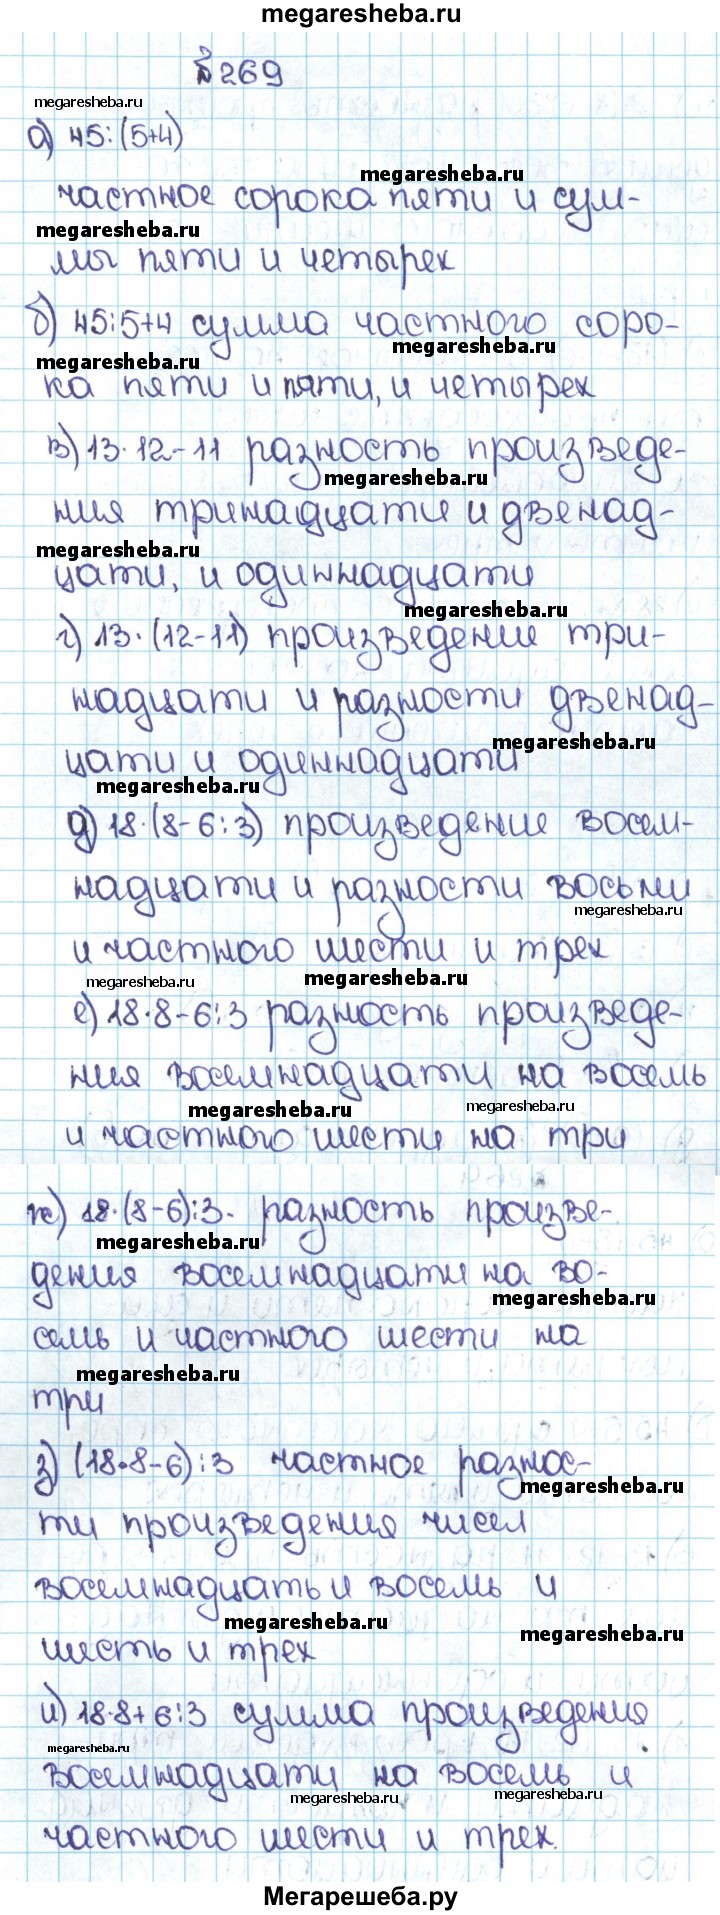 megaresheba.ru
№ 269
megaresheba.ru
а) 45:(5+4)
megaresheba.ru
частное сорока пяти и сум-
megaresheba.ru
мы пяти и четырех
б) 45:5+4 сумма частного соро-
megaresheba.ru
megaresheba.ru
ка пяти и пяти, и четырех
в) 13·12-11 разность произведе-
megaresheba.ru
ния тринадцати и двенад-
megaresheba.ru
цати, и одиннадцати
megaresheba.ru
г) 13·(12-11) произведение три-
надцати и разности двенад-
megaresheba.ru
цати и одиннадцати
megaresheba.ru
д) 18·(8-6:3) произведение восем-
надцати и разности восьми
megaresheba.ru
и частного шести и трех
megaresheba.ru
megaresheba.ru
е) 18·8-6:3 разность произведе-
ния восемнадцати на восемь
megaresheba.ru
megaresheba.ru
и частного шести на три
ж) 18·(8-6):3- разность произве-
megaresheba.ru
дения восемнадцати на во-
megaresheba.ru
семь и частного шести на
megaresheba.ru
три
з) (18·8-6):3 частное разнос-
megaresheba.ru
ти произведения чисел
восемнадцать и восемь и
megaresheba.ru
megaresheba.ru
шесть и трех
и) 18·8+6:3 сумма произведения
megaresheba.ru
восемнадцати на восемь и
megaresheba.ru
megaresheba.ru
частного шести и трех.
Мегарешеба.ру